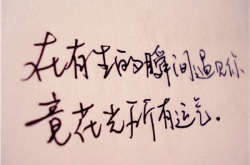 在有生的瞬间遇见你
竟花光所有运气.